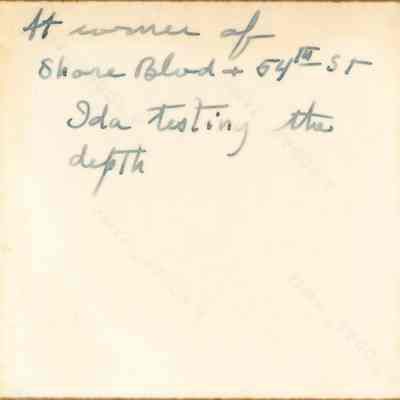 At corner of
Shore Blvd + 54TH ST
Ida testing the
depth